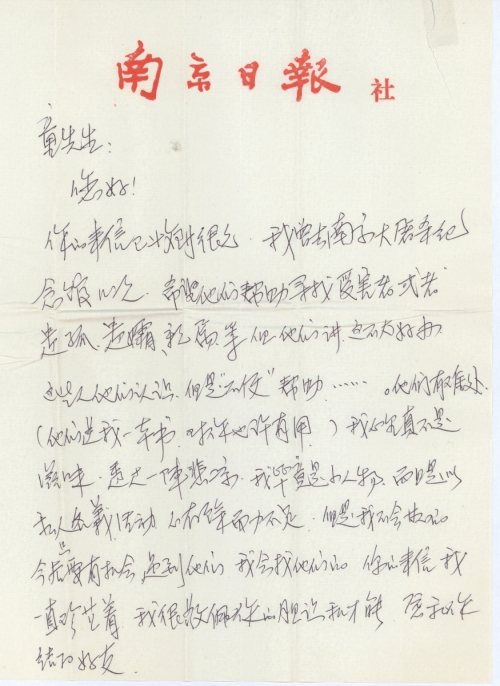 南京日報社
童先生：
您好！
你的来信已收到很久，我曾去南京大屠杀纪
念馆几次，希望他们帮助寻找受害者或者
遗孤、遗孀、亲属等，但他们讲这不大好办
这些人他们认识，但是“不便”帮助……。他们有难处
（他们送我一本书，对你也许有用）我心里真不是
滋味，透过一阵悲凉，我毕竟是小人物，而且是以
私人名義活动，心有余而力不足，但是我不会放心
今后要有机会，遇到他们，我会找他们的，你的来信我
一直珍藏着，我很敬佩你的胆识和才能，愿和你
结为好友